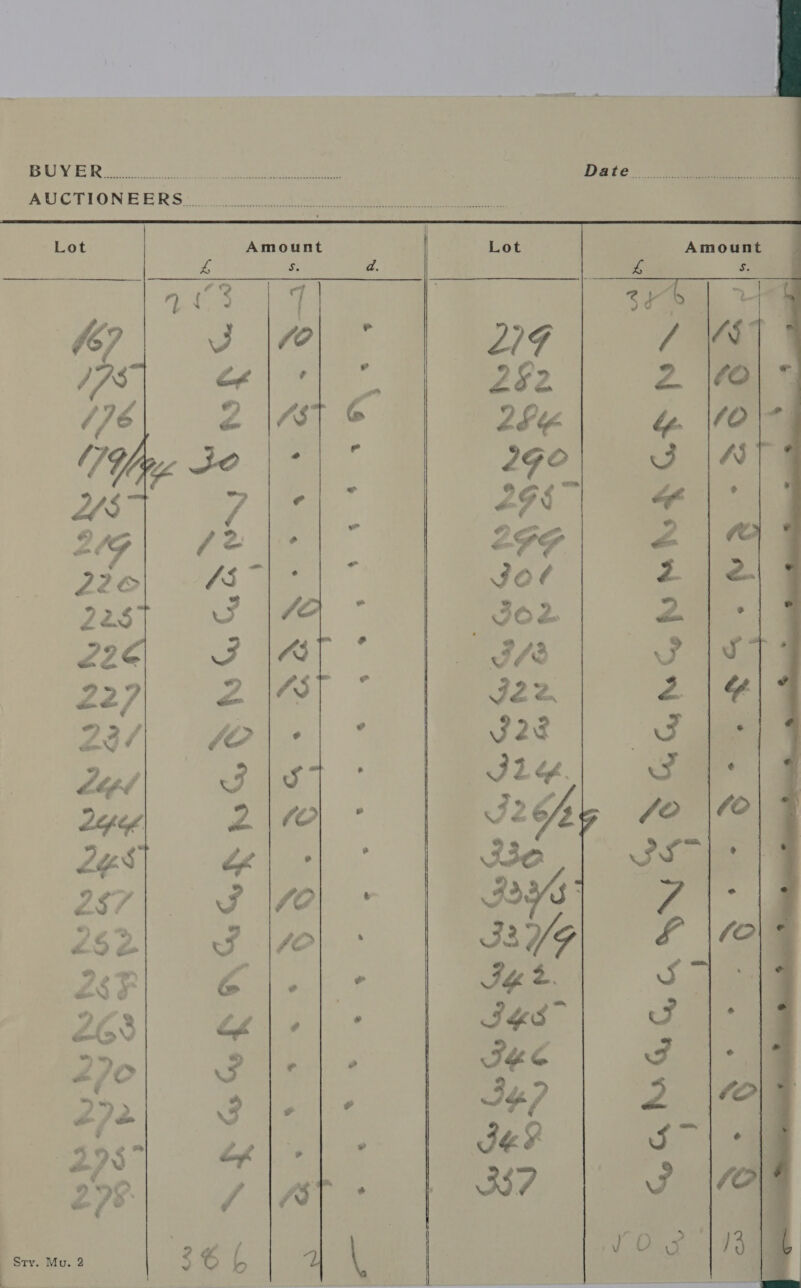 BUYER Date
AUCTIONEERS
Lot Amount Lot Amount
£ s. d. £ s.
253 7 386 2 6
167 3 10 . 279 1 15 .
175 4 . . 282 2 10 .
176 2 15 6 284 4 10 .
179/84 30 . . 290 3 15 .
215 7 . . 295 4 . .
219 12 . . 299 2 10 .
220 15 . . 301 2 2 .
225 3 10 . 302 2 . .
226 3 15 . 313 3 5 .
227 2 15 . 322 2 4 .
231 10 . . 323 3 . .
241 3 5 . 324 3 . .
244 2 10 . 326/29 10 10 .
245 4 . . 330 35 . .
257 3 10 . 333/5 7 . .
252 3 10 . 337/9 8 10 .
258 6 . . 342 5 . .
263 4 . . 345 3 . .
270 3 . . 346 3 . .
272 3 . . 347 2 10 .
275 4 . . 348 5 . .
278 1 15 . 357 3 10 .
386 2 6 503 13 6
Sty. Mu. 2